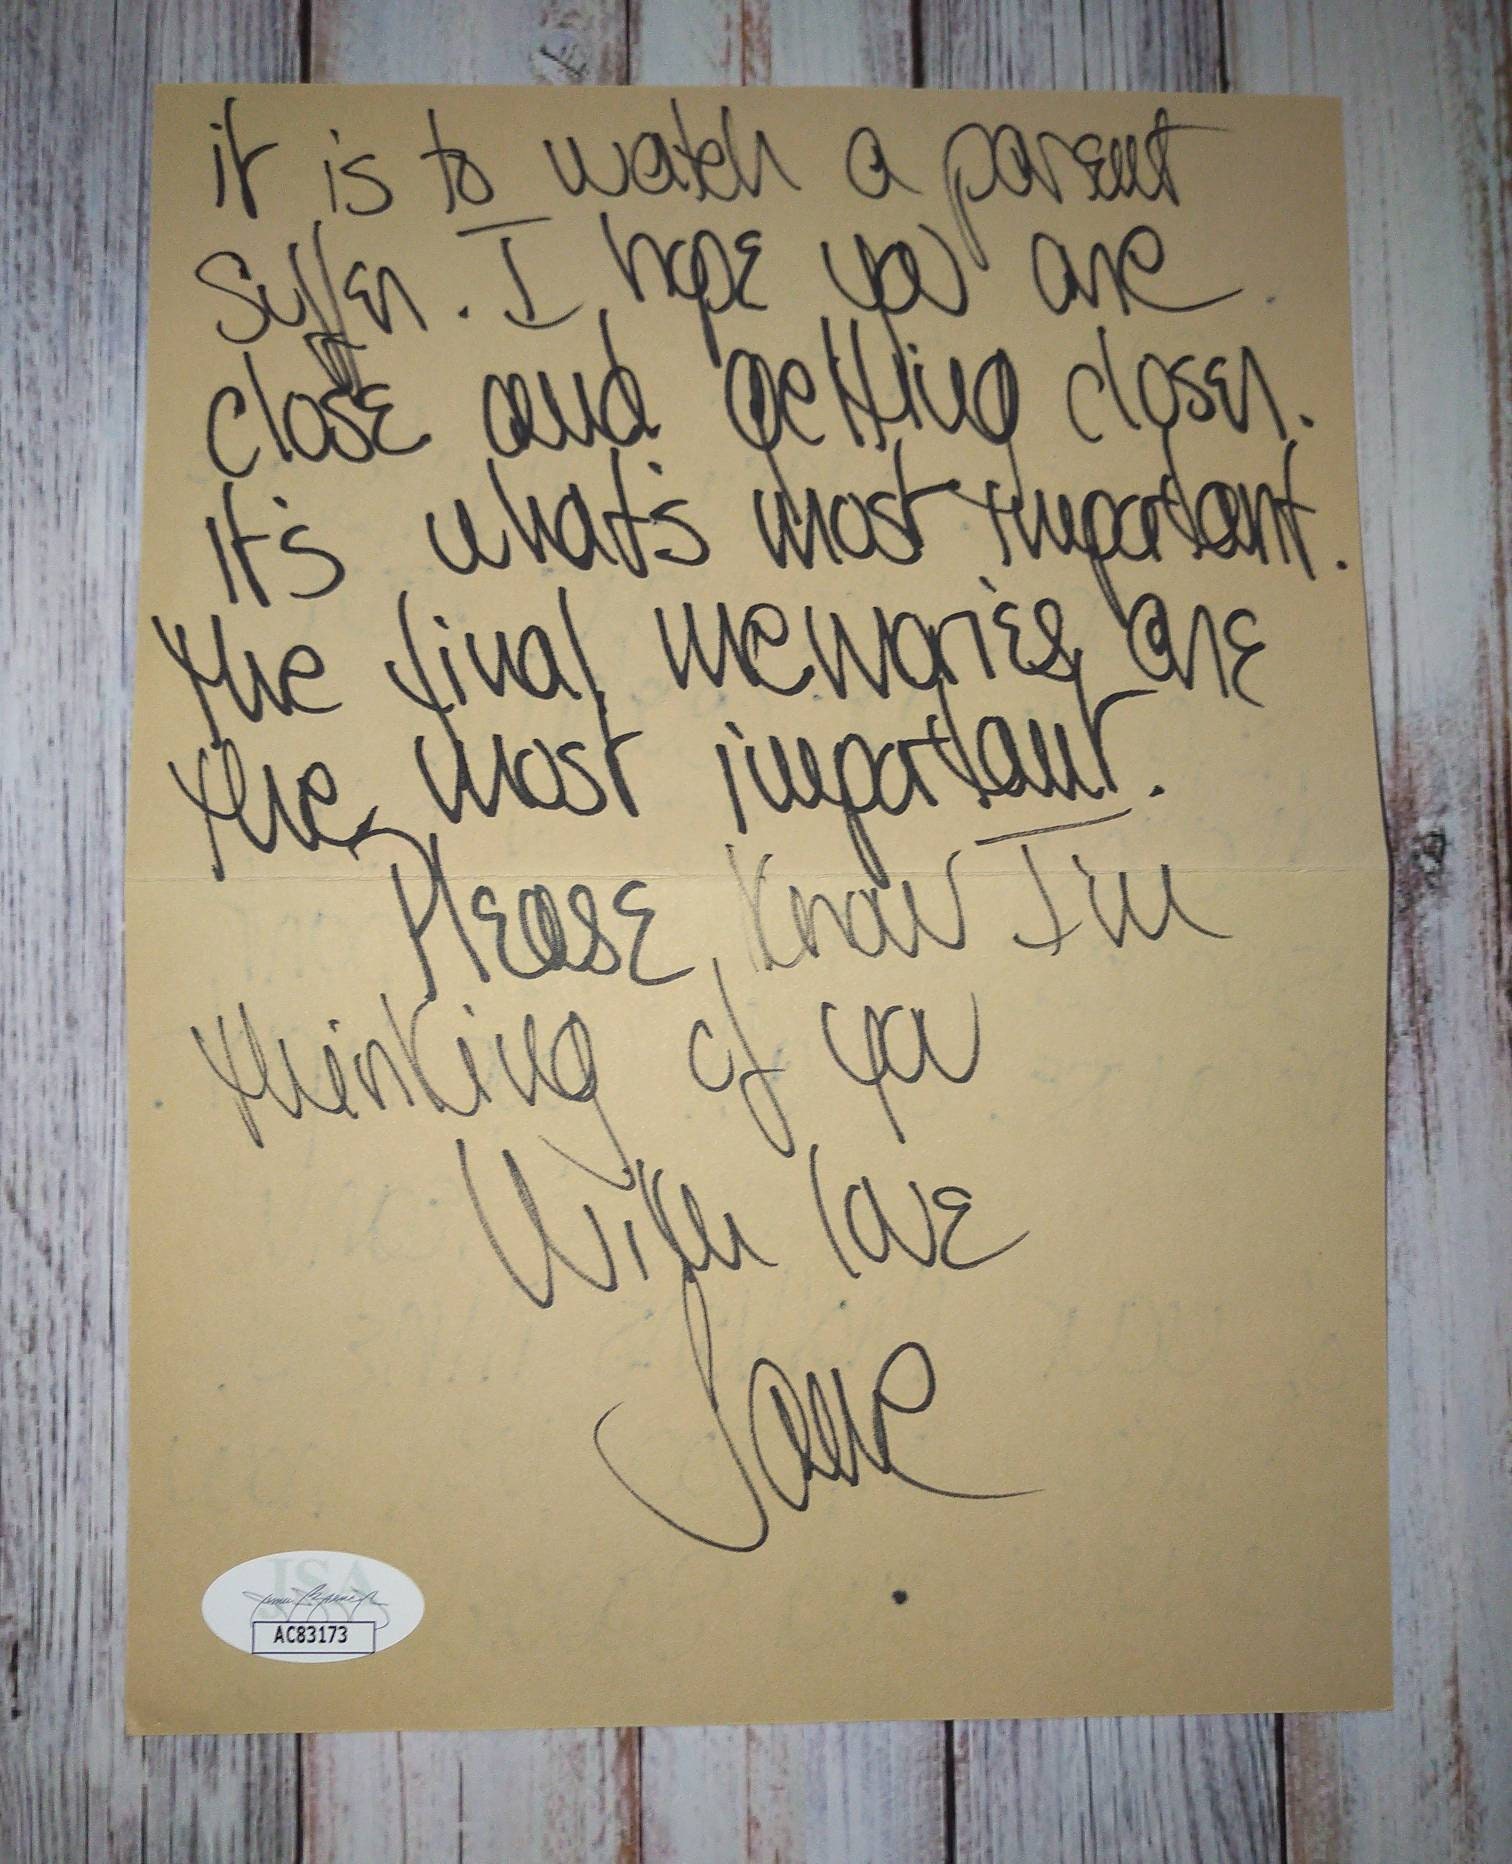 it is to watch a parent
suffer. I hope you are
close and getting closer.
It's what's most important.
The final memories are
the most important.
Please know I'm
thinking of you
With love
Jane
JSA
AC83173